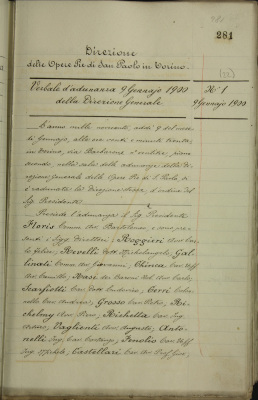 281
Direzione
delle Opere Pie di San Paolo in Torino.
Verbale d'adunanza 9 Gennajo 1900
della Direzione Generale
N.° 1
9 Gennajo 1900
L'anno mille novecento, addì 9 del mese
di Gennajo, alle ore venti e minuti trenta,
in Torino, via Barbaroux, piano
secondo, nella sala delle adunanze della Di-
rezione generale delle Opere Pie di S. Paolo, si
è radunata la Direzione stessa, d'ordine del
Sig. Presidente.
Presiede l'adunanza il Sig. Presidente
Floris Comm. Avv. Bartolomeo, e sono pre-
senti i Sigg. Direttori, Avv. Cav.
Revelli Dott. Michelangelo, Gal-
linati Comm. Avv. Giovanni, Chiesa Cav. Uff.
Avv. Camillo, Avv. Carlo,
Scarfiotti Cav. Dott. Lodovico, Cerri Colon-
nello Cav. Andrea, Grosso Cav. Pietro, Ri-
chelmy Cav. Avv. Pietro, Cav. Ing.
Vaglienti Avv. Augusto, Anto-
nelli Ing. Cav. Costanzo, Fenolio Cav. Uff.
Ing. Michele, Castellari Cav. Avv.